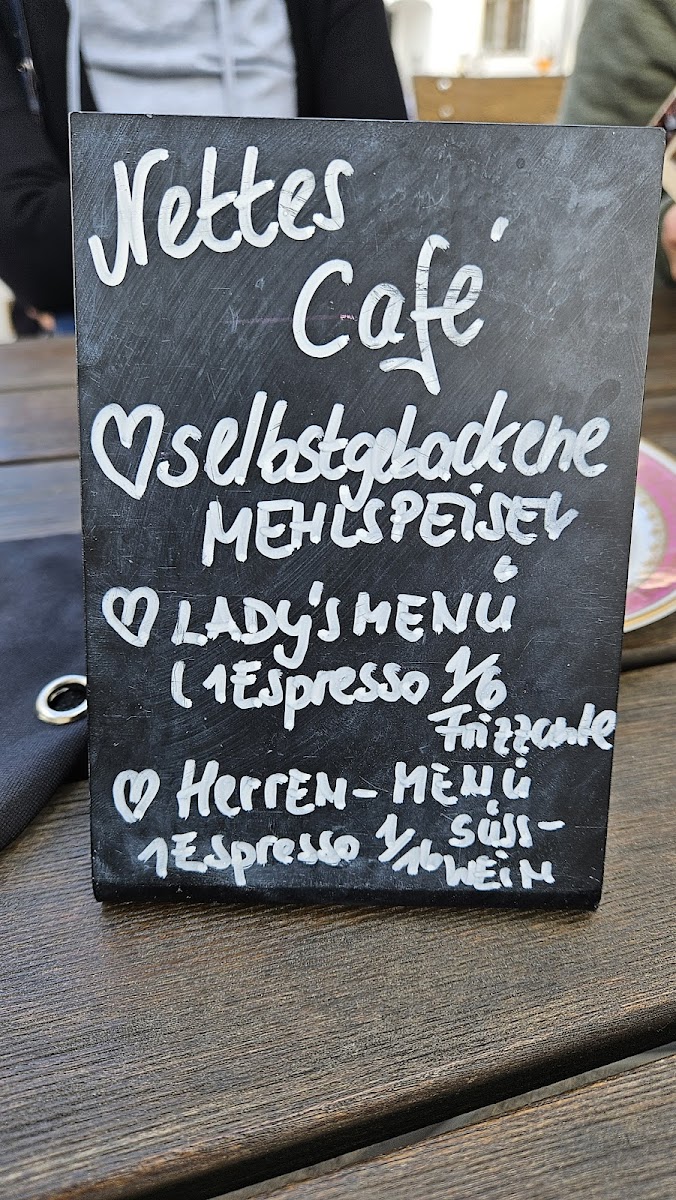 Nettes
Café
selbstgebackene
MEHLSPEISEN
LADY'S MENÜ
( 1 Espresso 1/6
Frizzante
HERREN-MENÜ
1 Espresso 1/16 SÜSS-
WEIN